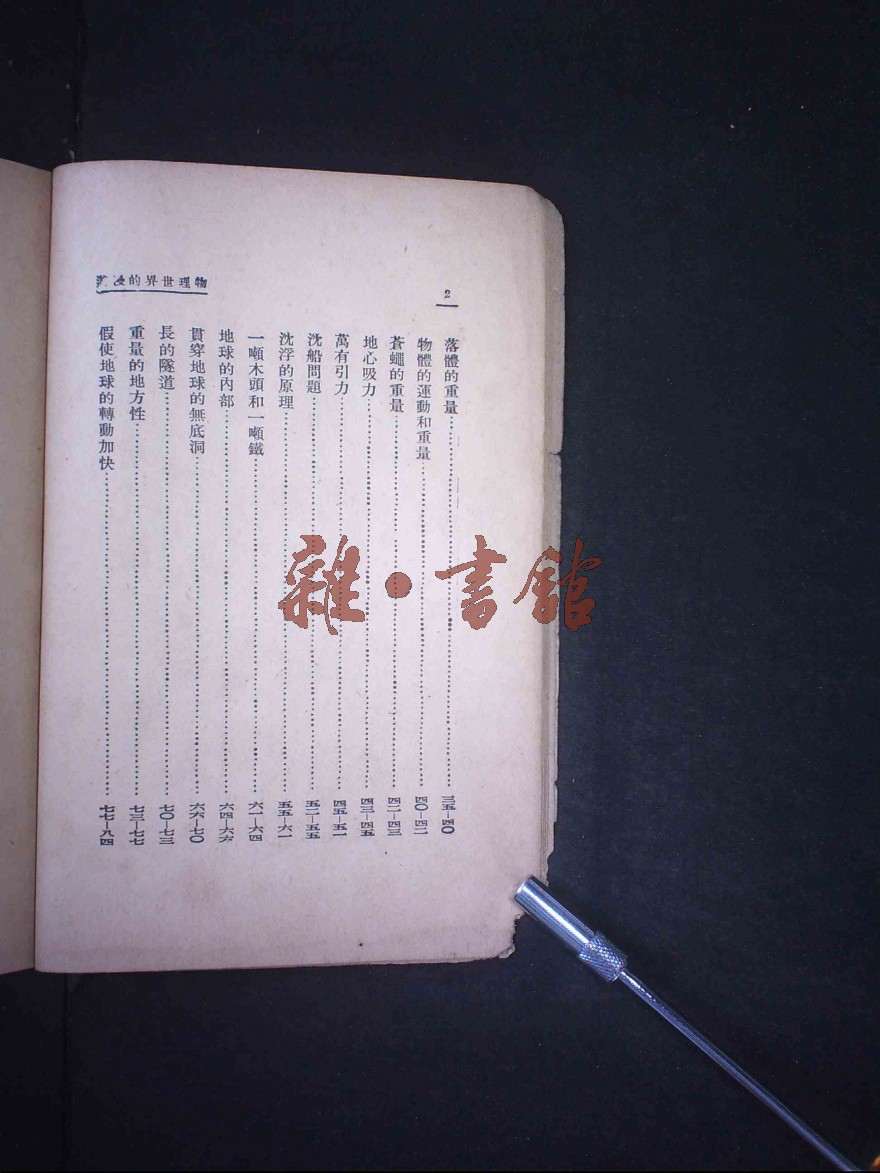 物理世界的漫遊
2
落體的重量……三五—四〇
物體的運動和重量……四〇—四二
蒼蠅的重量……四二—四三
地心吸力……四三—四五
萬有引力……四五—五一
沈船問題……五二—五五
沈浮的原理……五五—六一
一噸木頭和一噸鐵……六一—六四
地球的內部……六四—六六
貫穿地球的無底洞……六六—七〇
長的隧道……七〇—七三
重量的地方性……七三—七七
假使地球的轉動加快……七七—八四
雜·書館